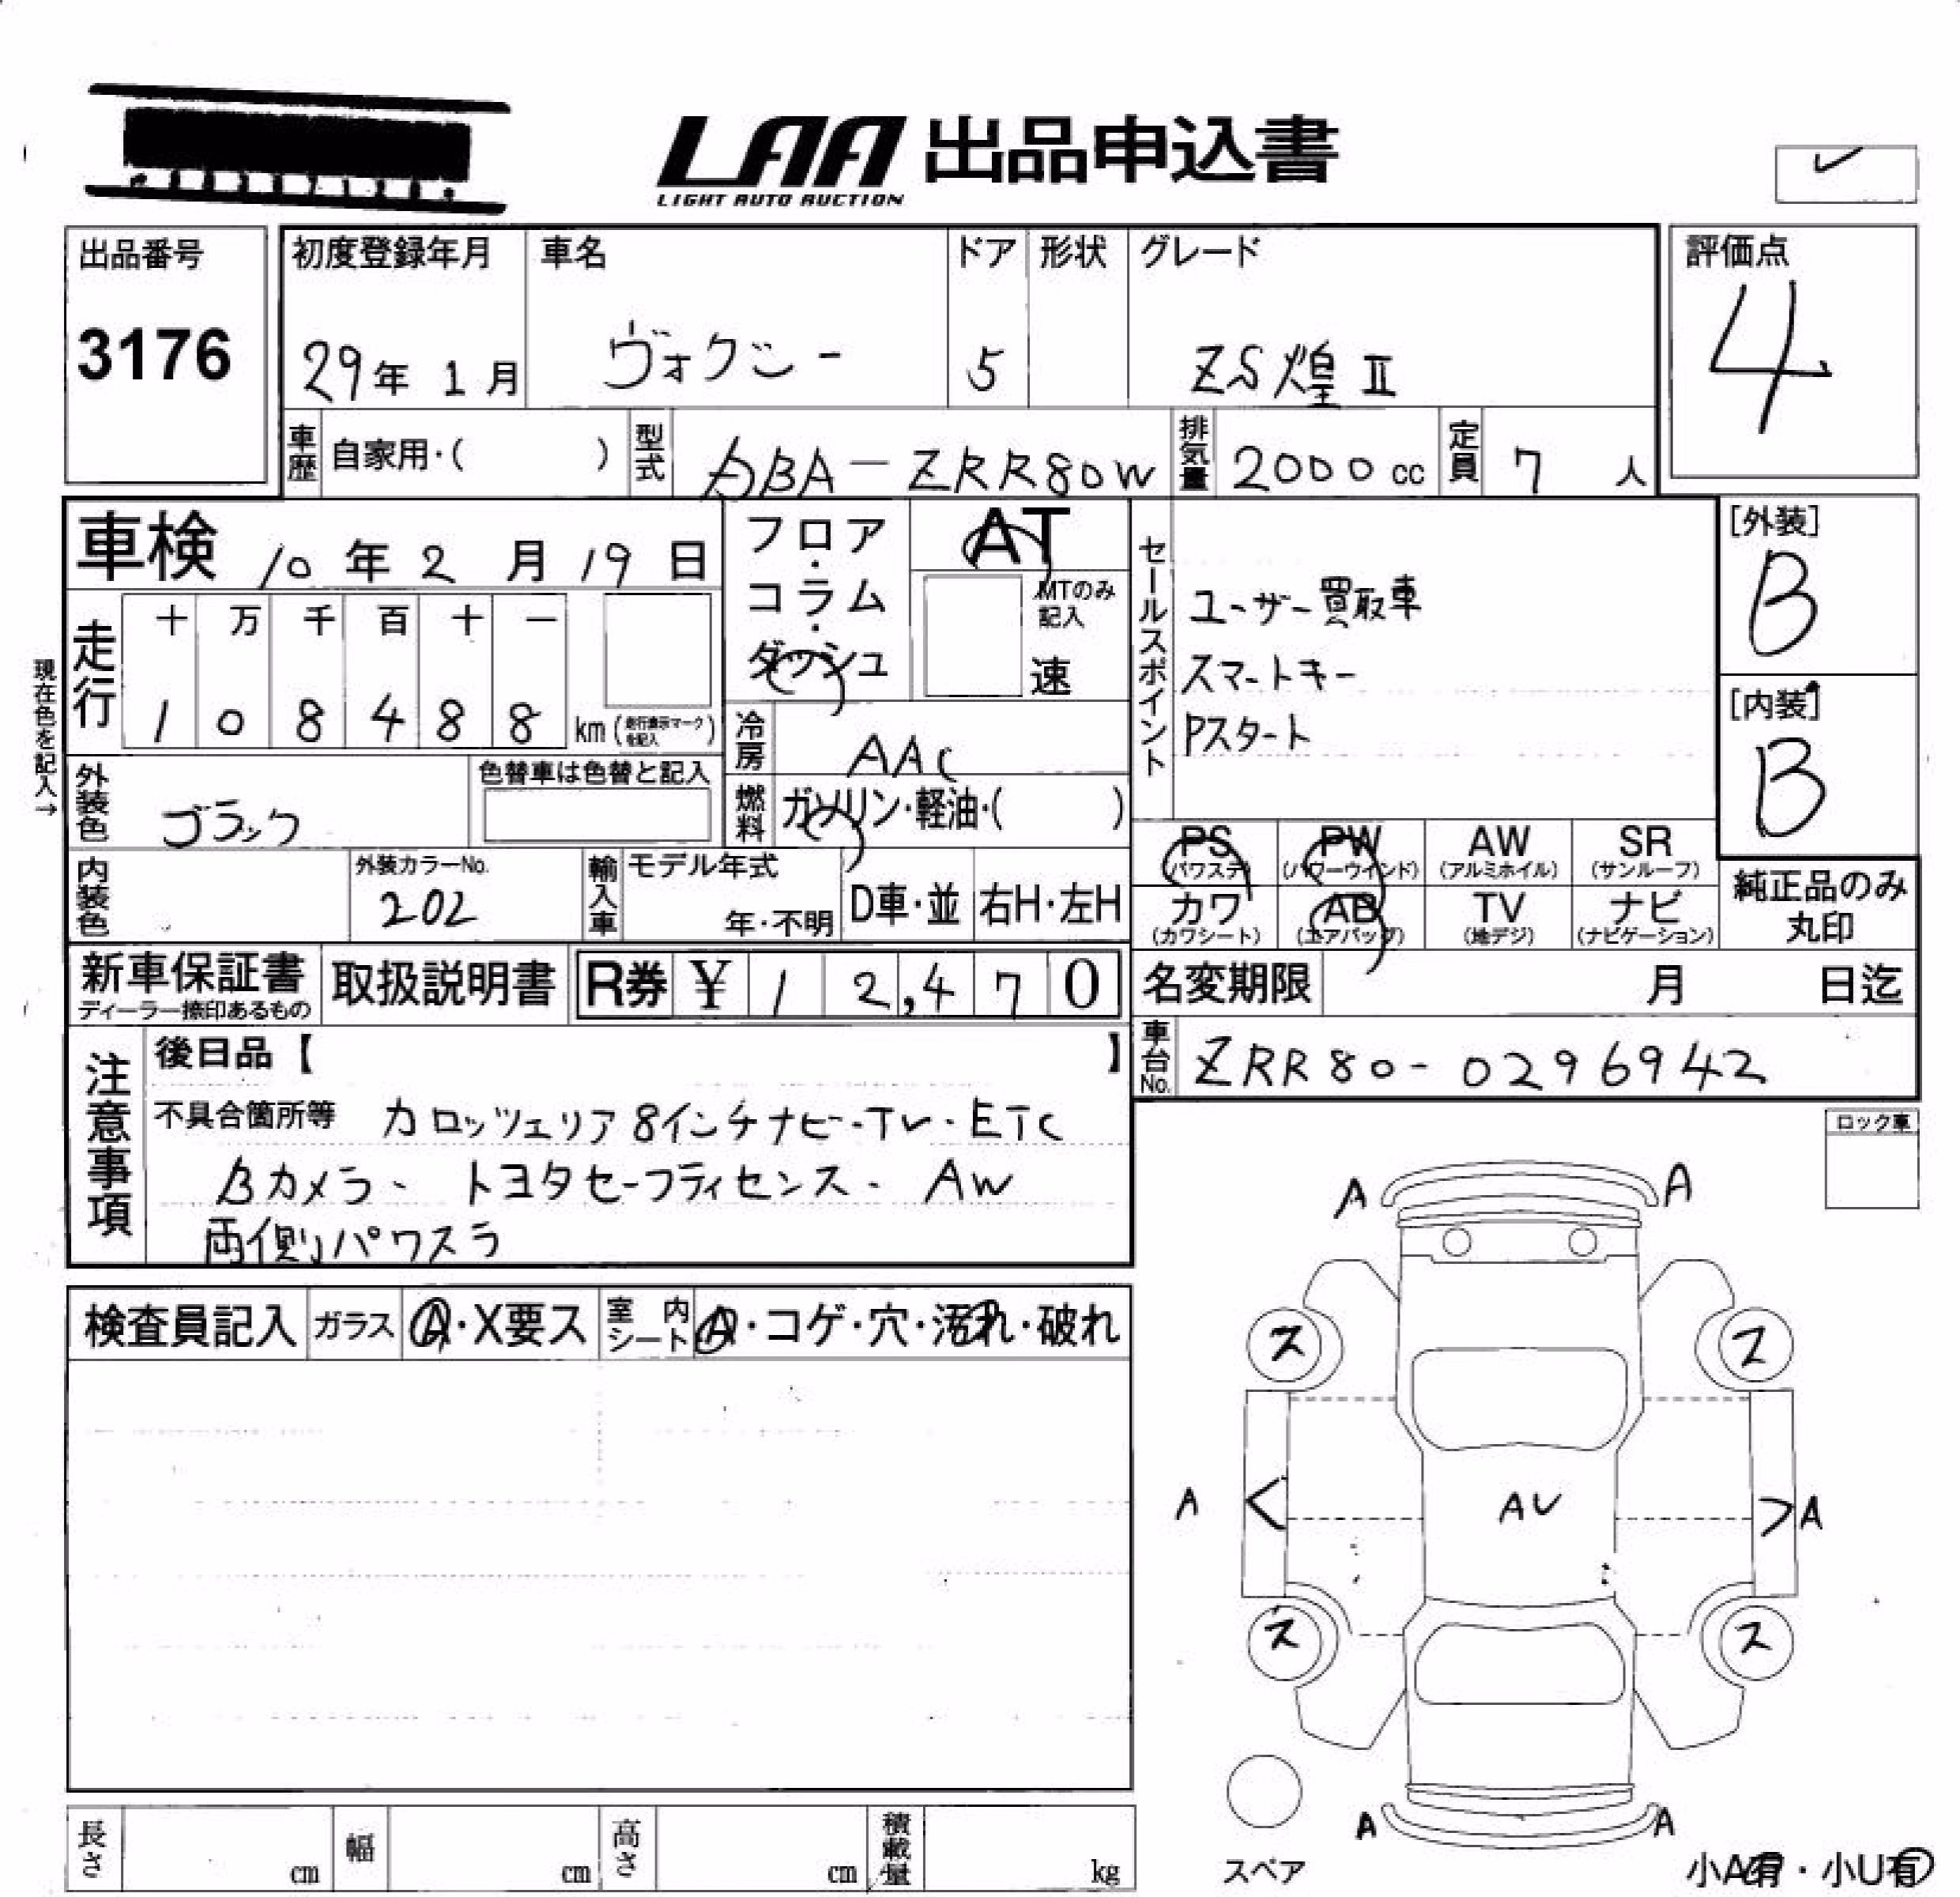 LAA 出品申込書
LIGHT AUTO AUCTION
出品番号
3176
初度登録年月
29年 1月
車名
ヴォクシー
ドア
5
形状
グレード
ZS煌Ⅱ
評価点
4
車歴 自家用・( )
型式 DBA-ZRR80W
排気量 2000cc
定員 7人
車検 10年2月19日
フロア・コラム・ダッシュ
AT
MTのみ記入
速
走行
十 万 千 百 十 一
1 0 8 4 8 8 km (走行表示マークを記入)
現在色を記入→
冷房 AAC
外装色 ブラック
色替車は色替と記入
燃料 ガソリン・軽油・( )
内装色
外装カラーNo.
202
輸入車
モデル年式
年・不明
D車・並
右H・左H
セールスポイント
ユーザー買取車
スマートキー
Pスタート
[外装]
B
[内装]
B
PS (パワステ)
PW (パワーウインド)
AW (アルミホイル)
SR (サンルーフ)
カワ (カワシート)
AB (エアバッグ)
TV (地デジ)
ナビ (ナビゲーション)
純正品のみ丸印
新車保証書
ディーラー捺印あるもの
取扱説明書
R券 ¥ 1 2,4 7 0
名変期限 月 日迄
車台No. ZRR80-0296942
注意事項
後日品【 】
不具合箇所等 カロッツェリア8インチナビ・TV・ETC
Bカメラ・トヨタセーフティセンス・AW
両側パワスラ
ロック車
検査員記入
ガラス A・X要ス
室内シート A・コゲ・穴・汚れ・破れ
A A
ス ス
A < AU > A
ス ス
A A
スペア
小A有・小U有
長さ cm
幅 cm
高さ cm
積載量 kg